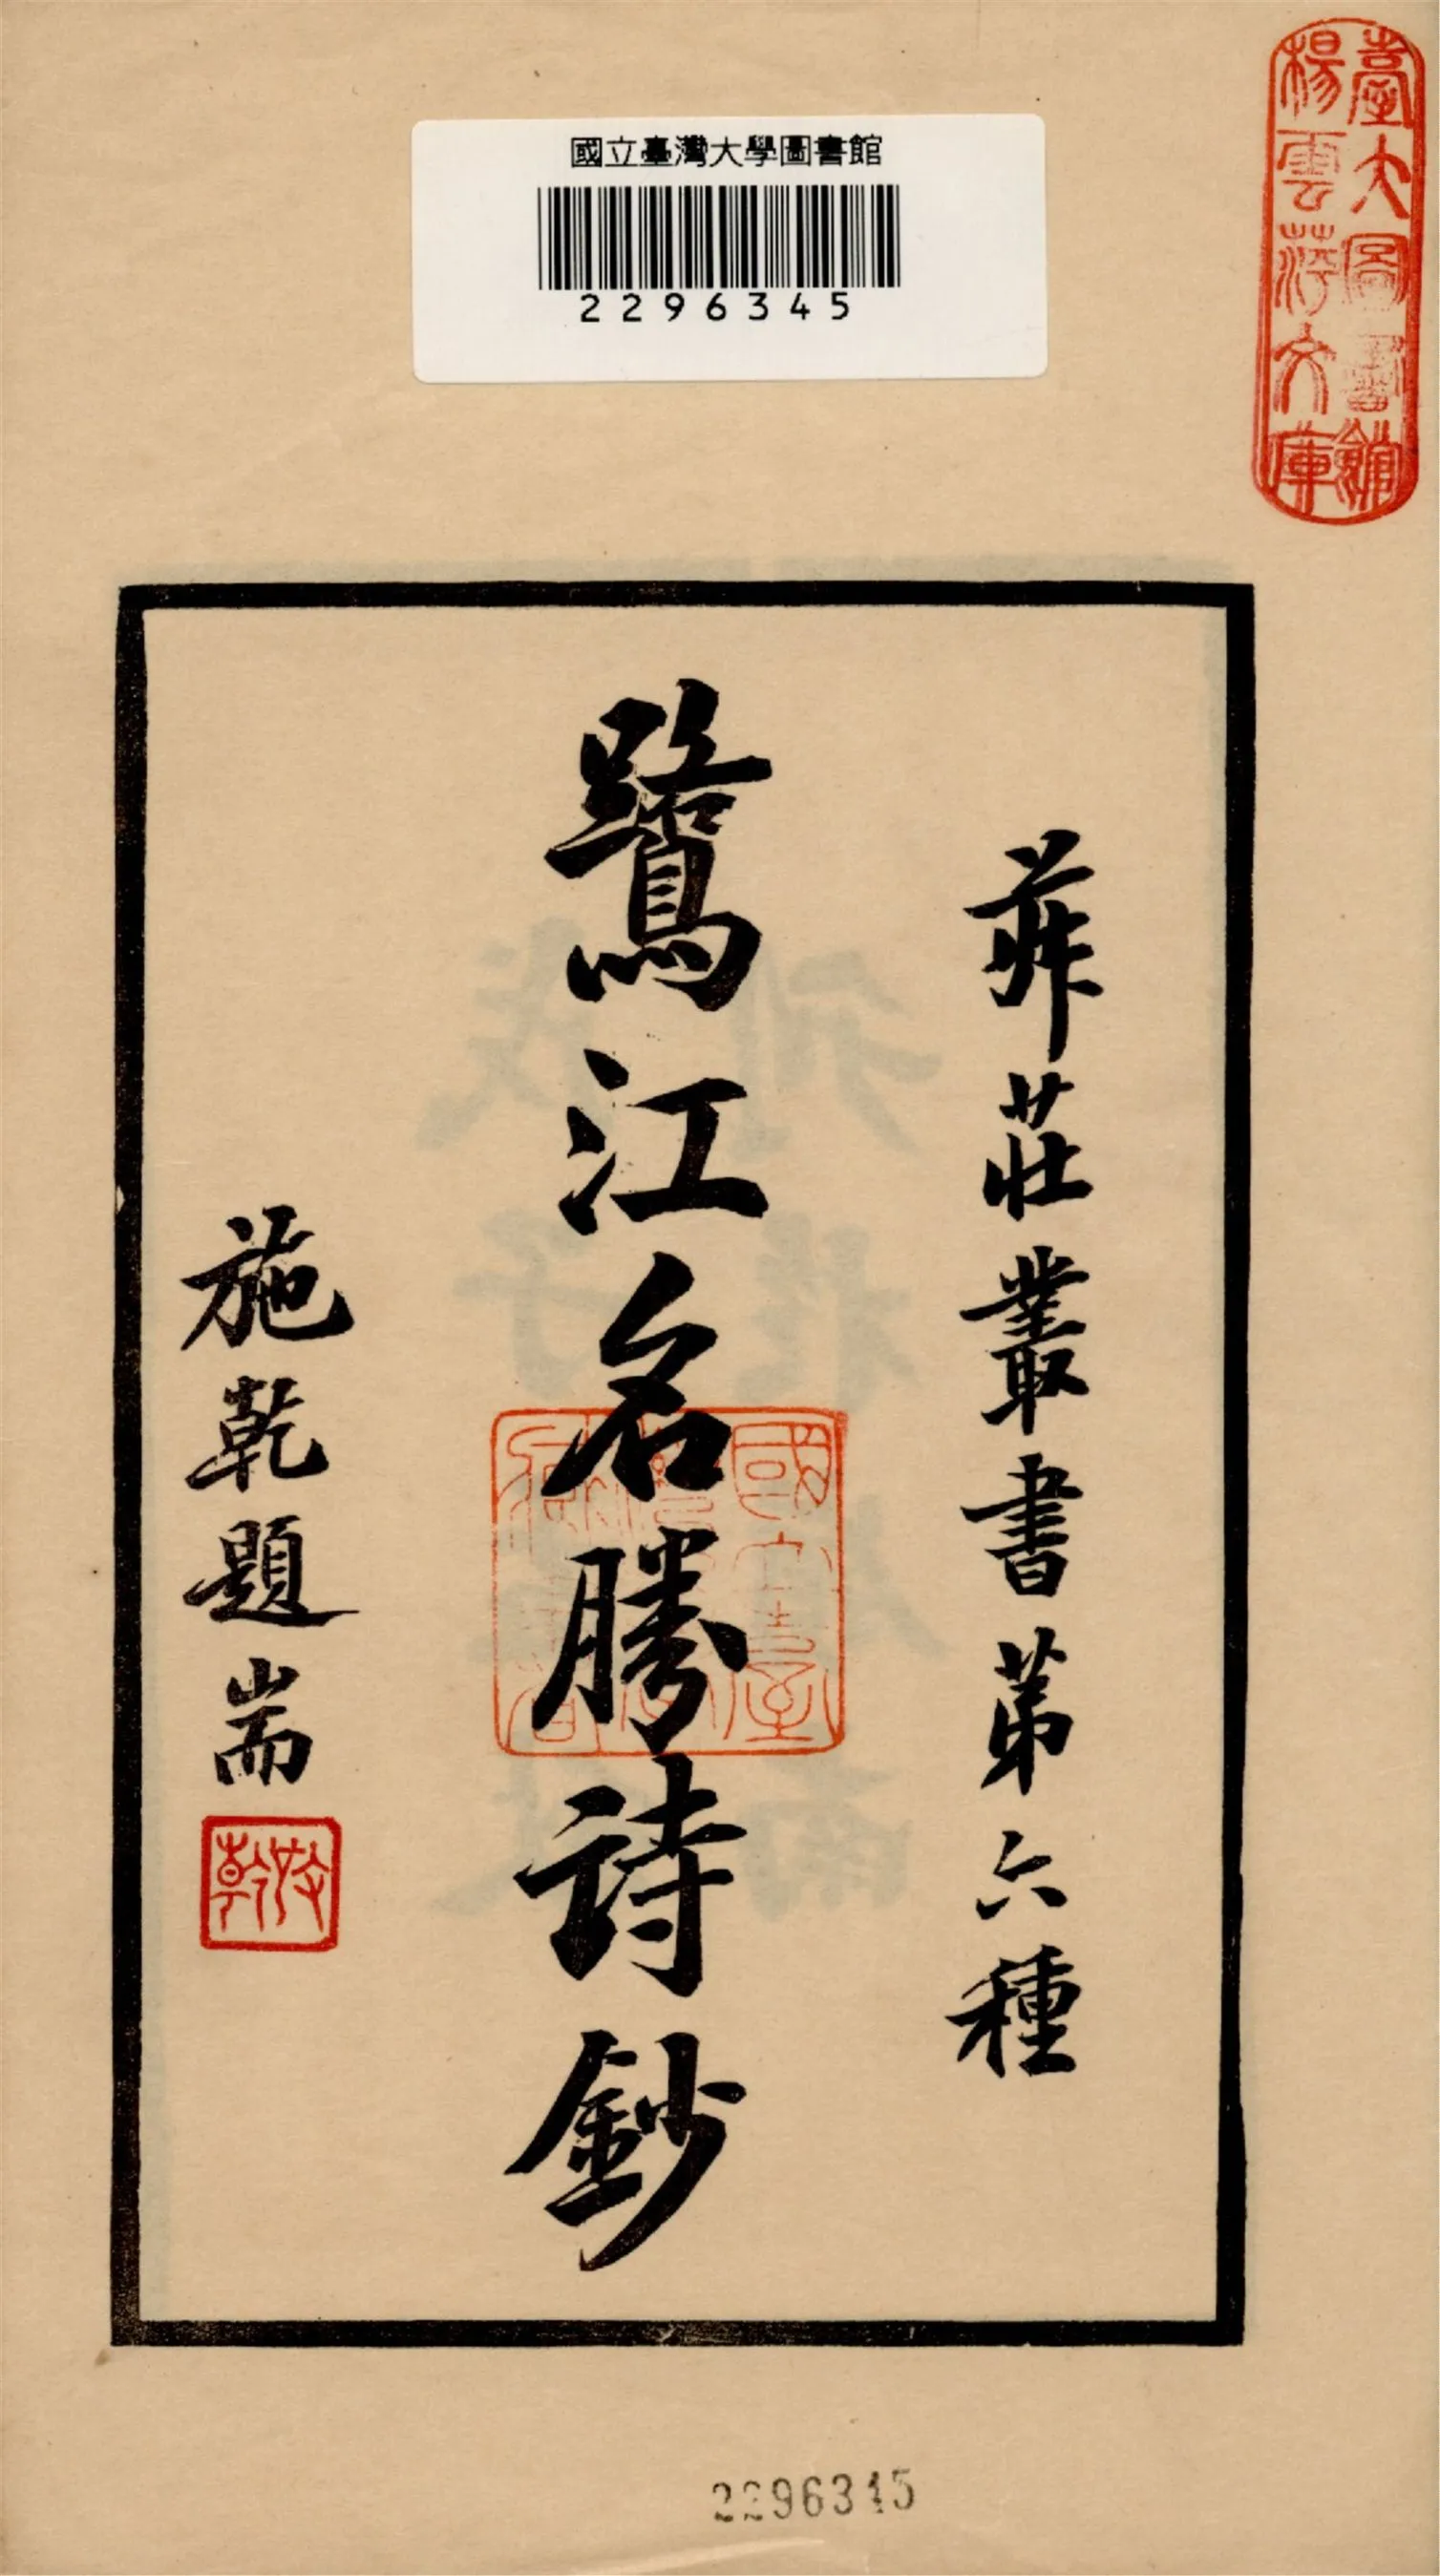 國立臺灣大學圖書館
2296345
臺大圖書館
楊雲萍文庫
菽莊叢書第六種
鷺江名勝詩鈔
施乾題耑
施乾
2296345